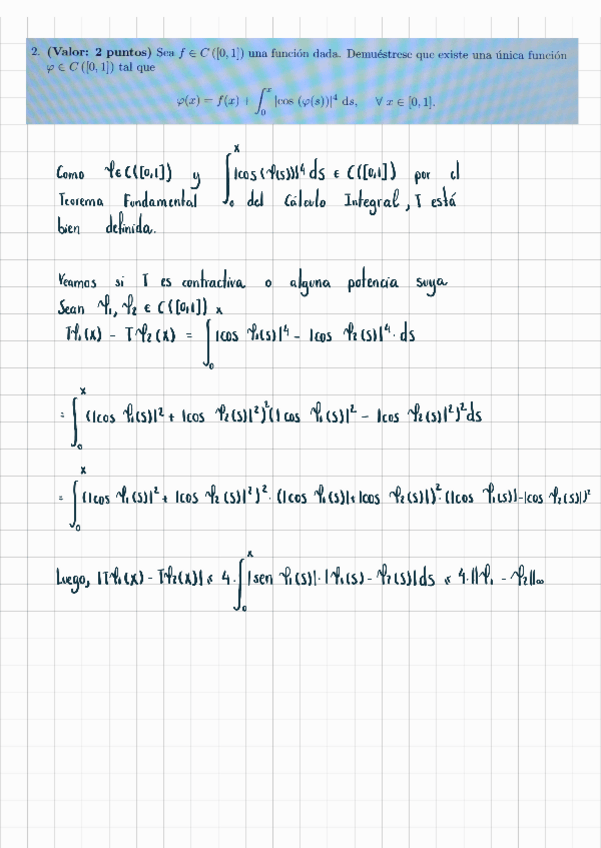 2. (Valor: 2 puntos) Sea f ∈ C ([0, 1]) una función dada. Demuéstrese que existe una única función
φ ∈ C ([0, 1]) tal que
φ(x) = f(x) + ∫₀ˣ |cos (φ(s))|⁴ ds, ∀ x ∈ [0, 1].
Como φ ∈ C([0,1]) y ∫₀ˣ |cos(φ(s))|⁴ ds ∈ C([0,1]) por el
Teorema Fundamental del Cálculo Integral, T está
bien definida.
Veamos si T es contractiva o alguna potencia suya
Sean φ₁, φ₂ ∈ C([0,1])
Tφ₁(x) - Tφ₂(x) = ∫₀ˣ |cos φ₁(s)|⁴ - |cos φ₂(s)|⁴ · ds
= ∫₀ˣ (|cos φ₁(s)|² + |cos φ₂(s)|²)² (|cos φ₁(s)|² - |cos φ₂(s)|²)² ds
= ∫₀ˣ (|cos φ₁(s)|² + |cos φ₂(s)|²)² · (|cos φ₁(s)| + |cos φ₂(s)|)² · (|cos φ₁(s)| - |cos φ₂(s)|)²
Luego, |Tφ₁(x) - Tφ₂(x)| ≤ 4 · ∫₀ˣ |sen φ₁(s)| · |φ₁(s) - φ₂(s)| ds ≤ 4 · ||φ₁ - φ₂||∞